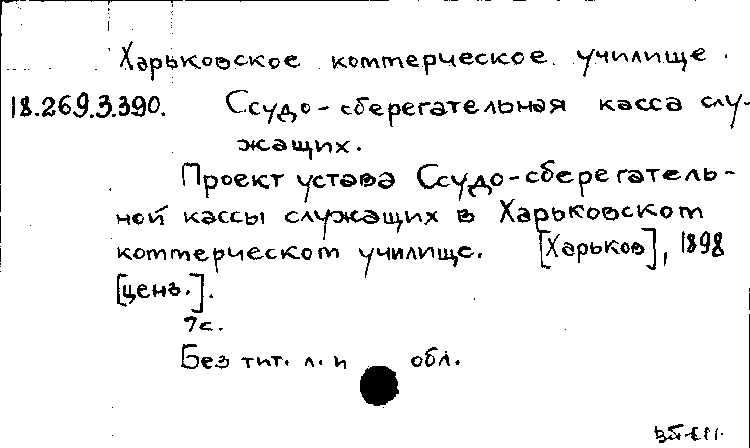 Харьковское коммерческое училище.
18.269.3.390. Ссудо-сберегательная касса слу-
жащих.
Проект устава Ссудо-сберегатель-
ной кассы служащих в Харьковском
коммерческом училище. [Харьков], 1898
[ценз.].
7 с.
Без тит. л. и обл.